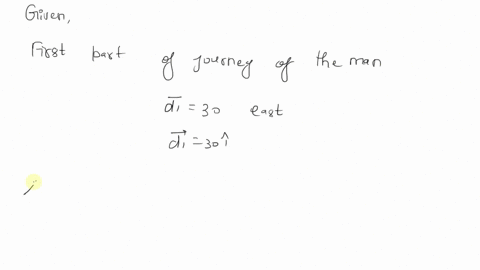 Given,
First part of journey of the man
d₁ = 30 east
d₁ = 30 î